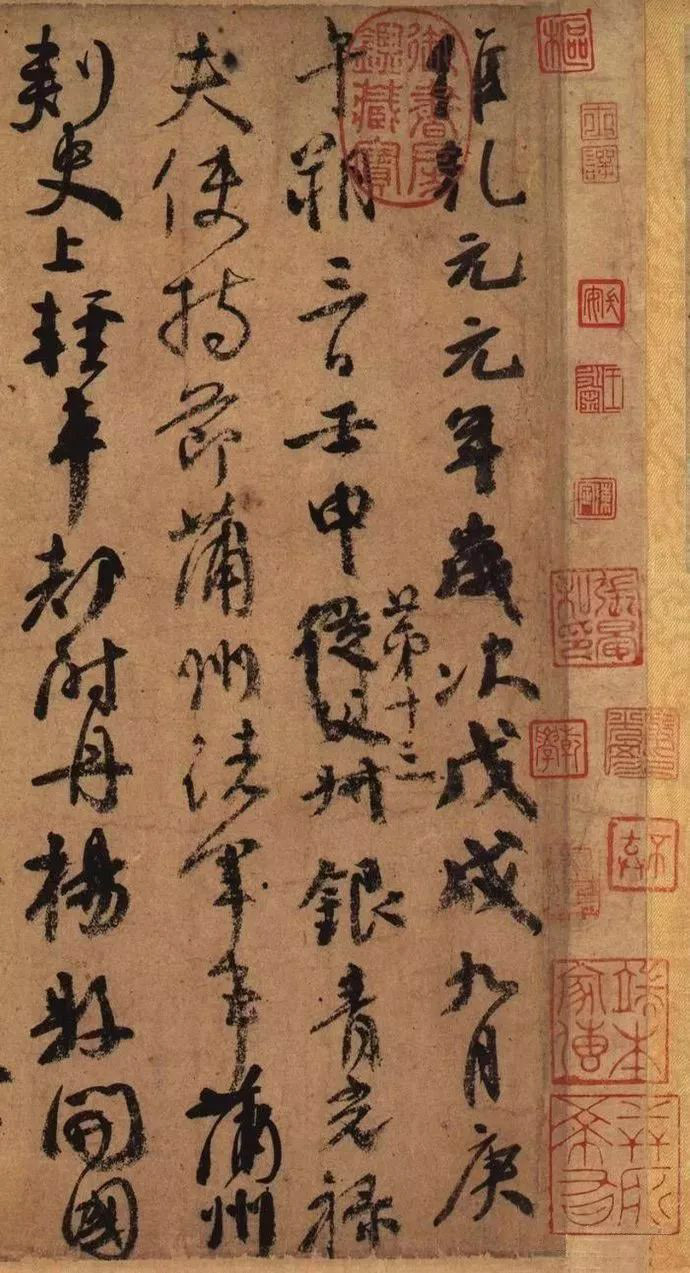 維乾元元年歲次戊戌九月庚
午朔三日壬申從父叔銀青光祿
第十三
夫使持節蒲州諸軍事蒲州
刺史上輕車都尉丹楊縣開國
御書房鑑藏寶
樞
張晏私印
端本家傳